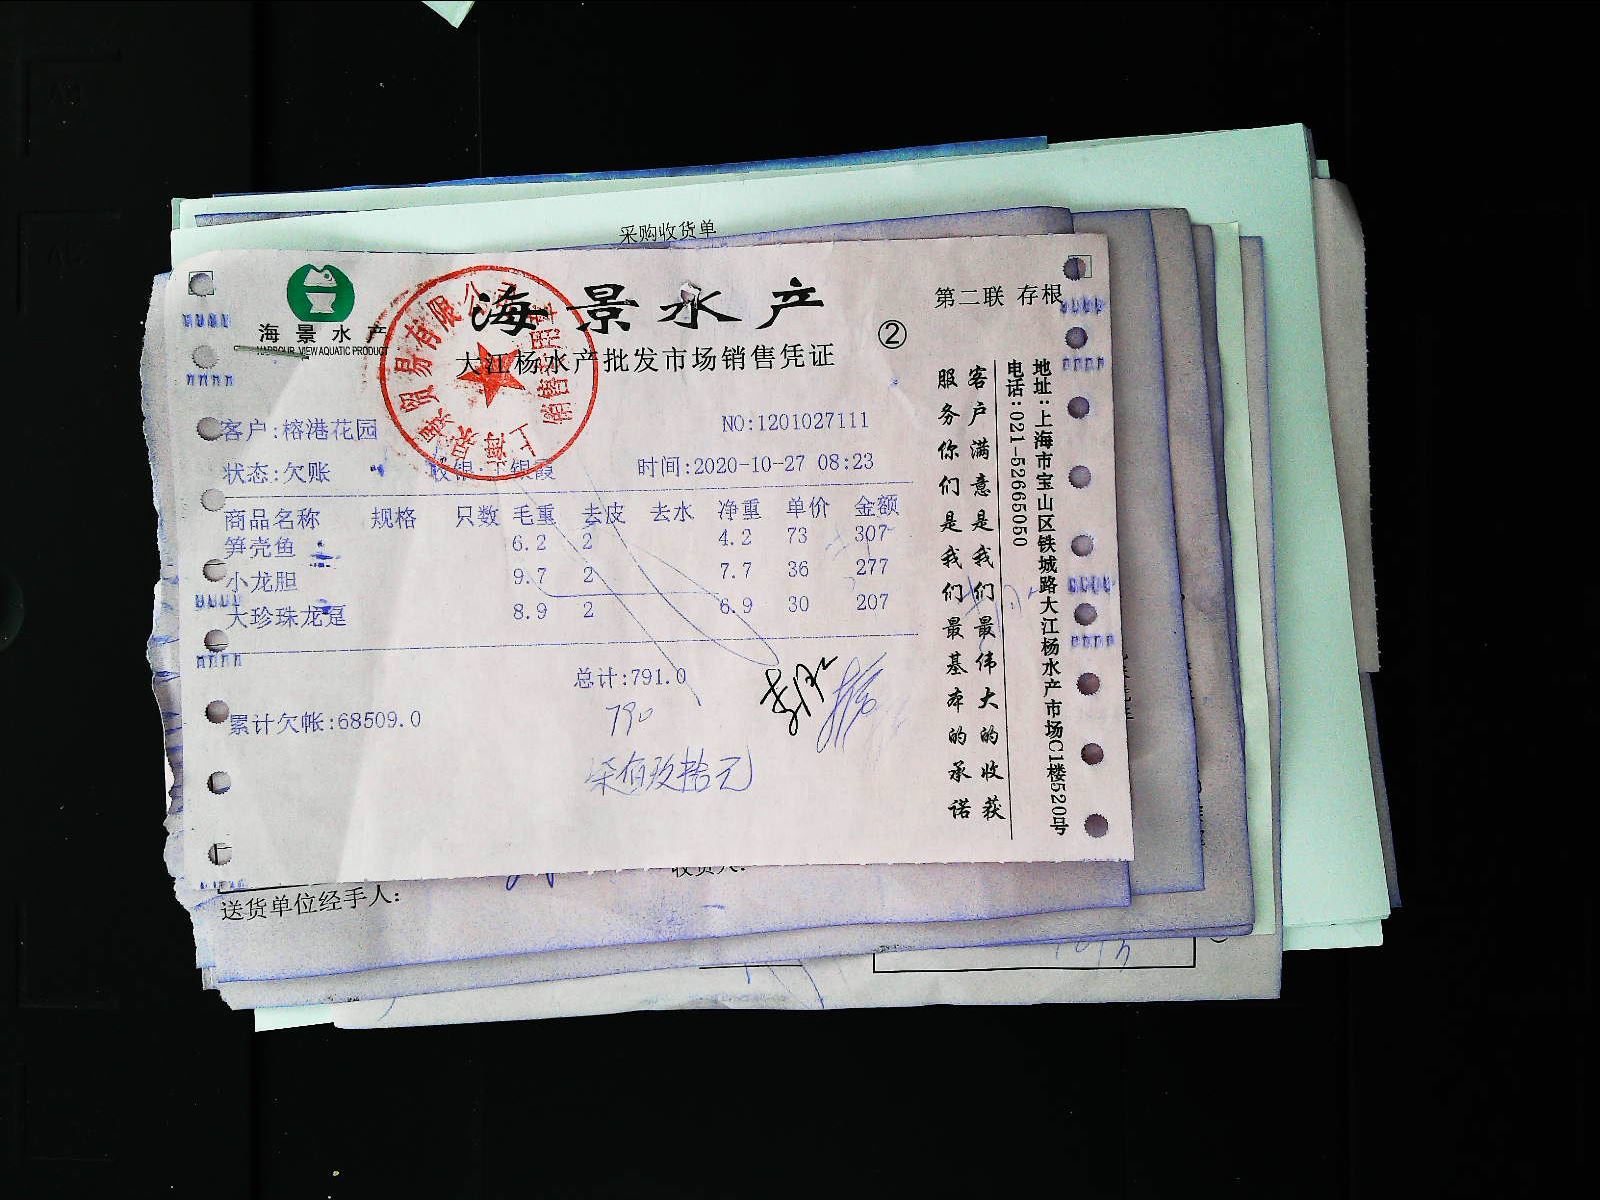 采购收货单
海景水产
HARBOUR VIEW AQUATIC PRODUCT
海景水产
大江杨水产批发市场销售凭证
②
第二联 存根
客户:榕港花园
NO:1201027111
状态:欠账
收银:
银霞
时间:2020-10-27 08:23
商品名称 规格 只数 毛重 去皮 去水 净重 单价 金额
笋壳鱼 6.2 2 4.2 73 307
小龙胆 9.7 2 7.7 36 277
大珍珠龙趸 8.9 2 6.9 30 207
总计:791.0
累计欠帐:68509.0
790
柒佰玖拾元
客户满意是我们最伟大的收获
服务你们是我们最基本的承诺
地址:上海市宝山区铁城路大江杨水产市场C1楼520号
电话:021-52665050
贸易有限公
上海
销售专用章
收货人:
送货单位经手人: